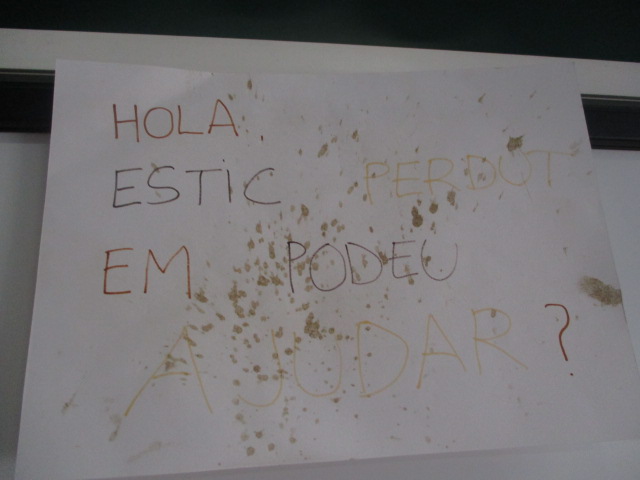 HOLA.
ESTIC PERDUT
EM PODEU
AJUDAR?